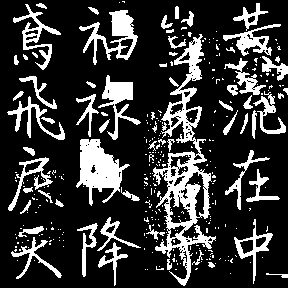 黄流在中
豈弟君子
福祿攸降
鳶飛戾天